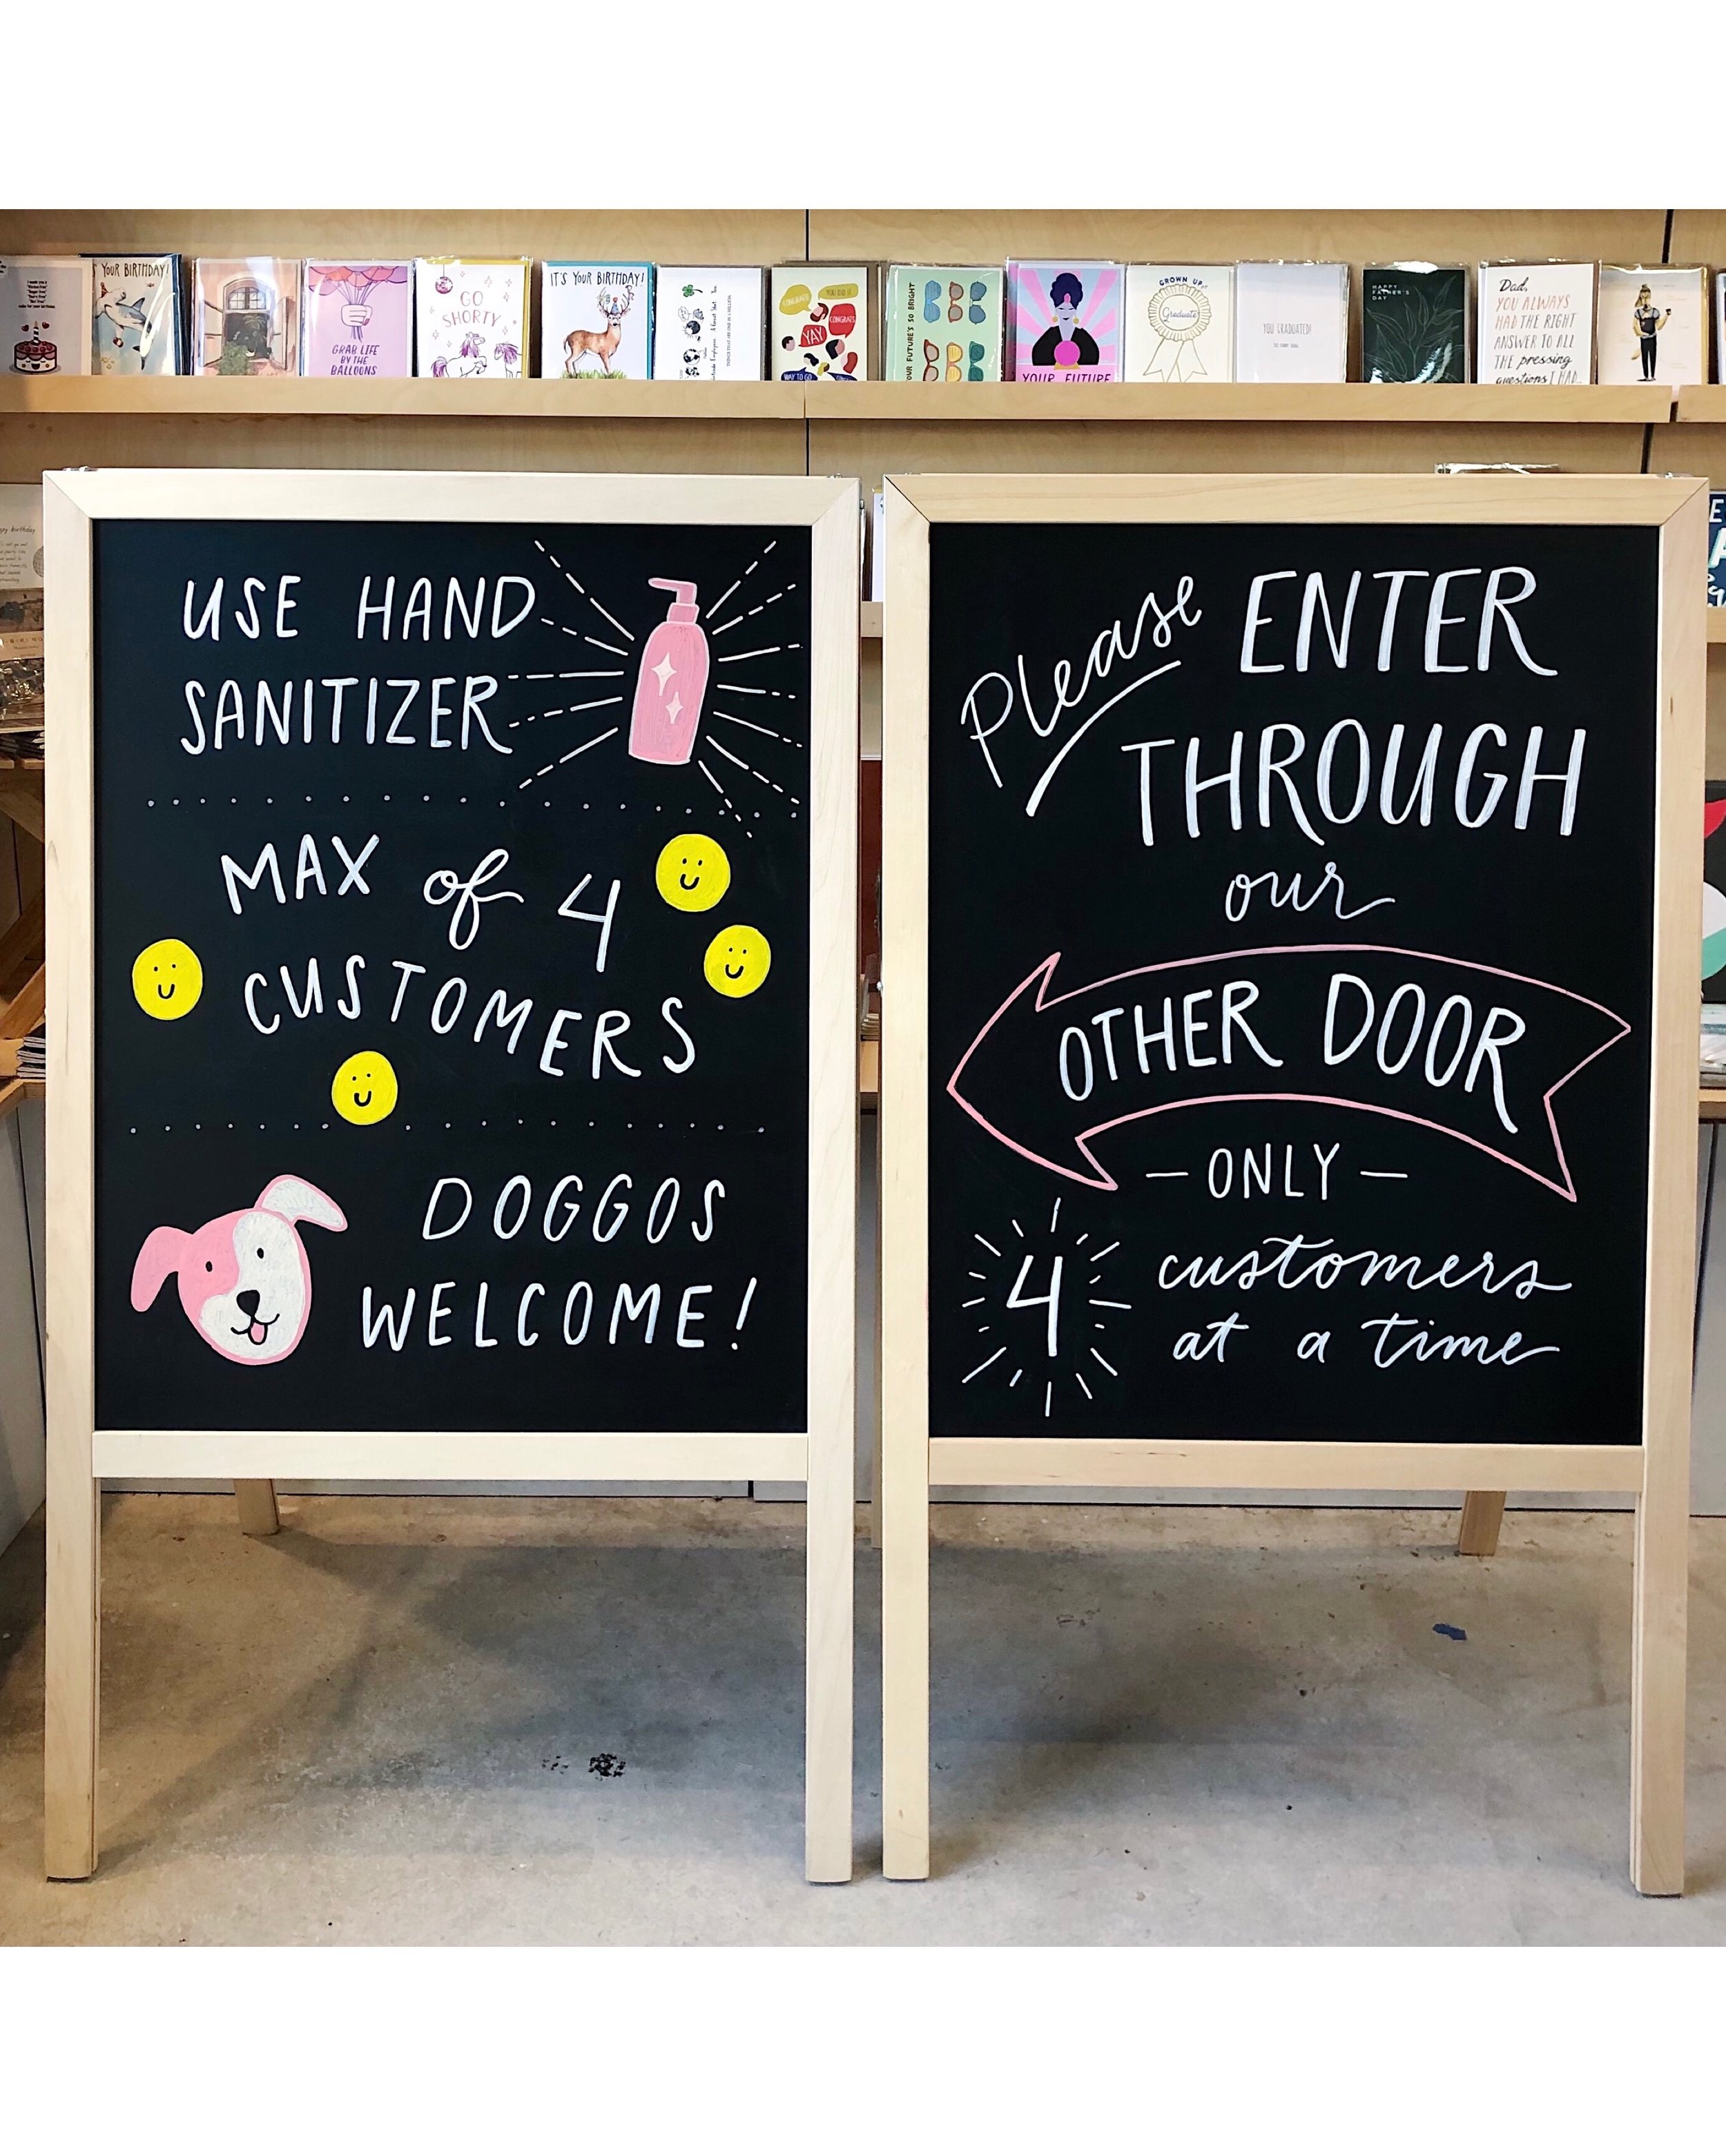 YOUR BIRTHDAY!
GRAB LIFE
BY THE
BALLOONS
GO
SHORTY
IT'S YOUR BIRTHDAY!
CONGRATS!
YOU DID IT
YAY!
CONGRATS
WAY TO GO
OUR FUTURE'S SO BRIGHT
YOUR FUTURE
GROWN UP
Graduate
YOU GRADUATED!
HAPPY
FATHER'S
DAY
Dad,
YOU ALWAYS
HAD THE RIGHT
ANSWER TO ALL
THE pressing
questions I HAD
USE HAND
SANITIZER
MAX of 4
CUSTOMERS
DOGGOS
WELCOME!
Please ENTER
THROUGH
our
OTHER DOOR
– ONLY –
4 customers
at a time